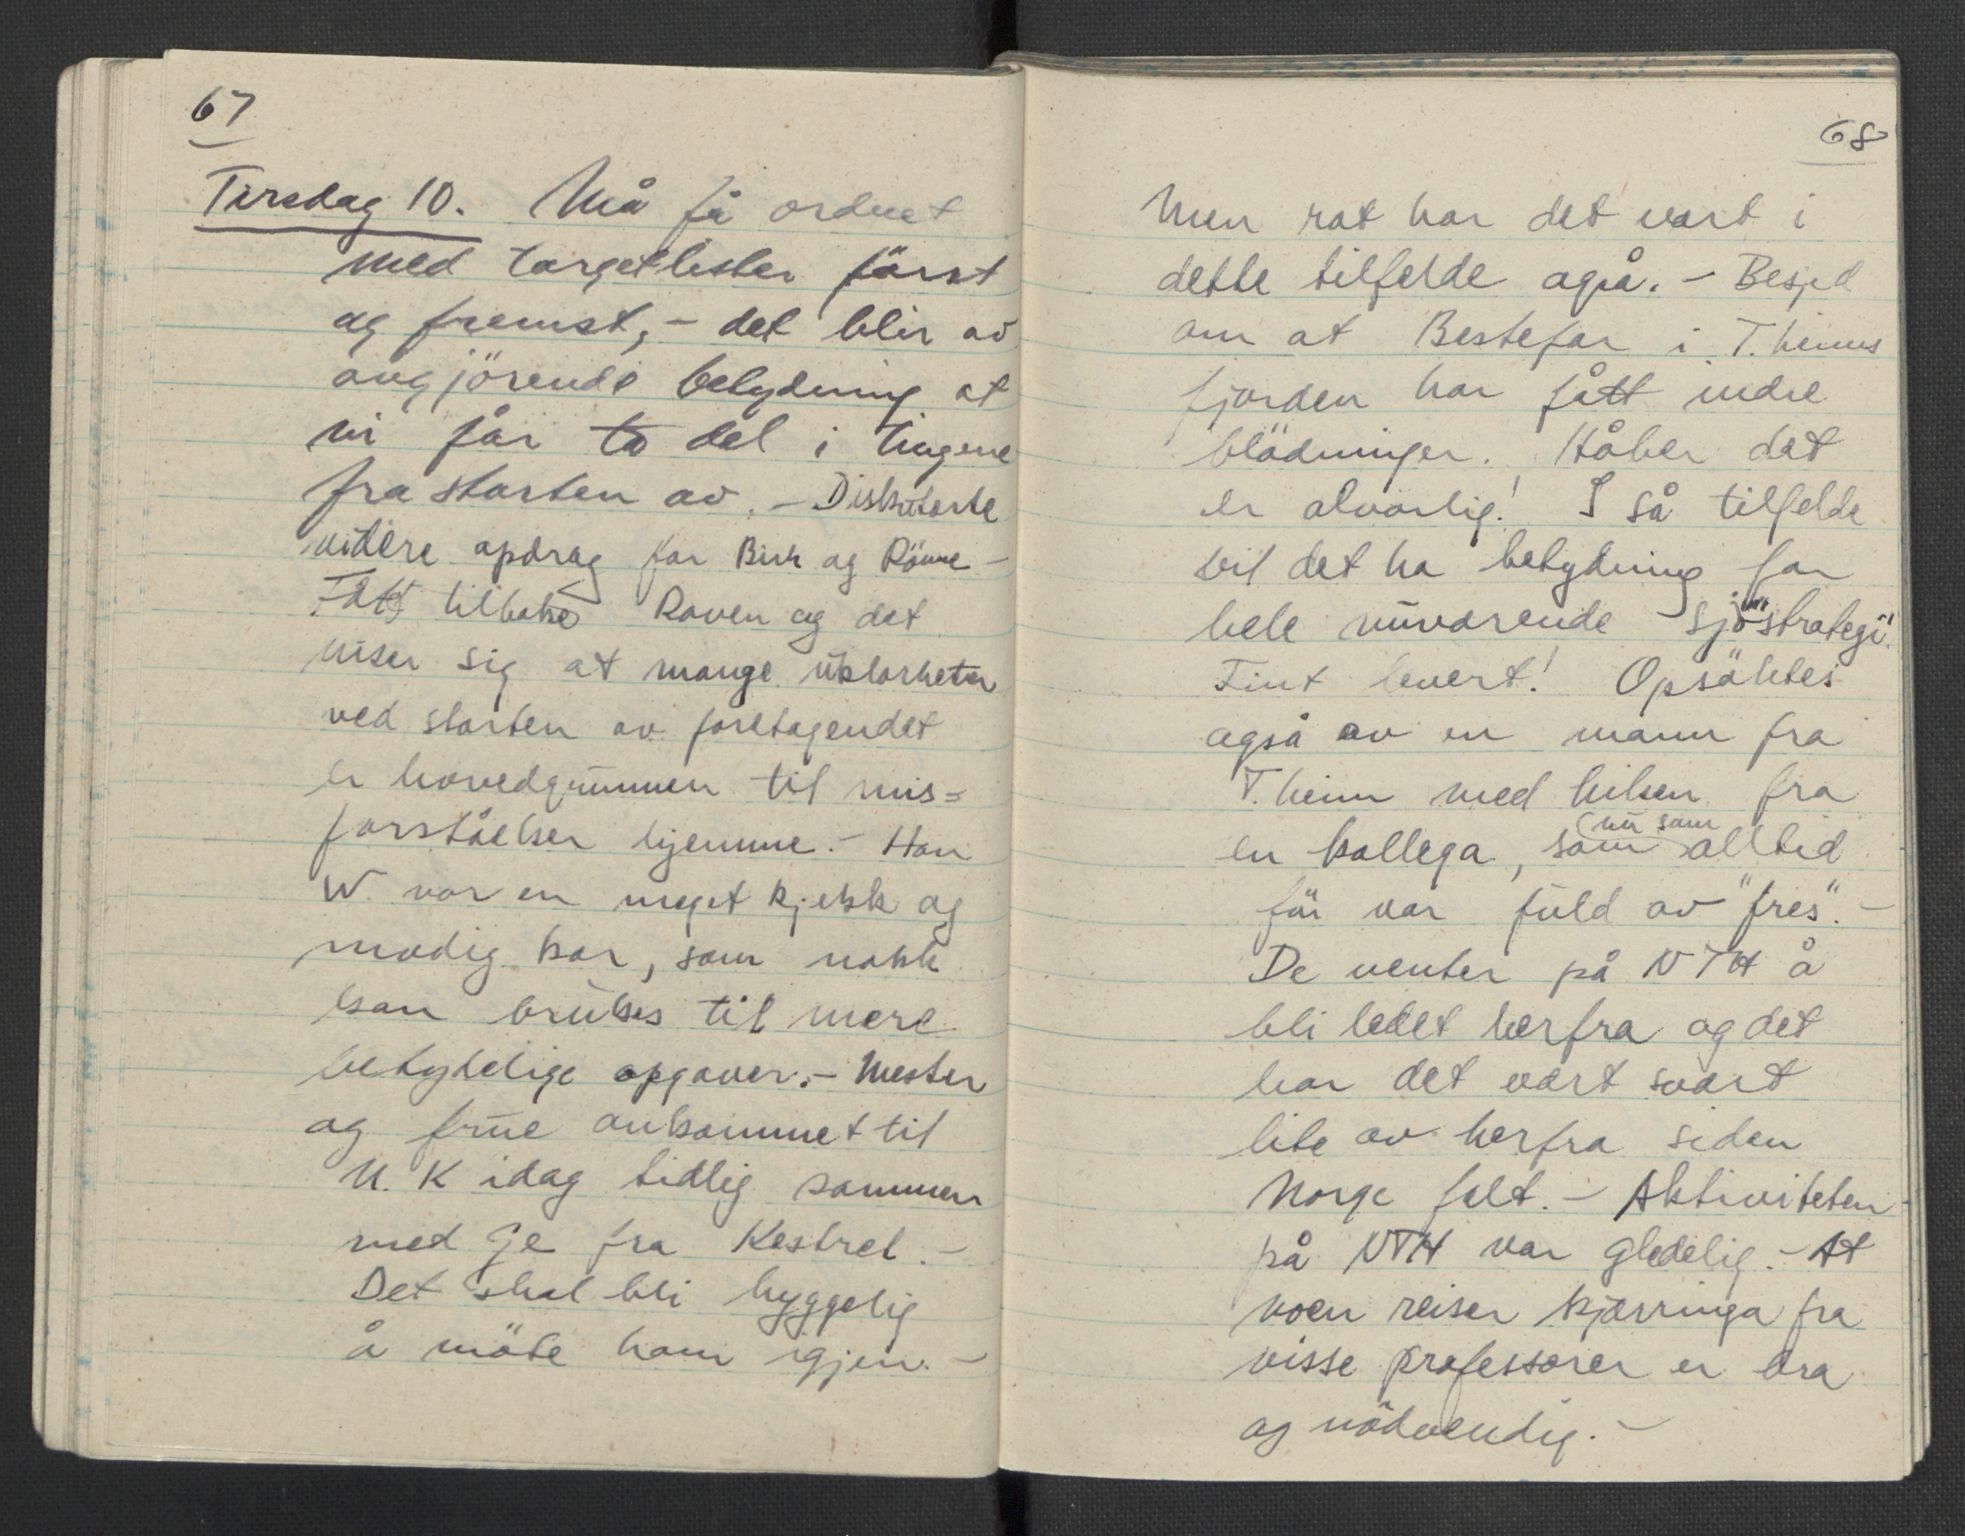 67
Tirsdag 10. Må få ordnet
med targetlister först
og fremst, - det blir av
avgjörende betydning at
vi får ta del i tingene
fra starten av. - Diskuterte
videre opdrag for Birk og Rönne -
Fått tilbake Raven og det
viser sig at mange uklarheter
ved starten av foretagendet
er hovedgrunnen til mis=
forståelser hjemme. - Han
W. var en meget kjekk og
modig kar, som nokk
kan brukes til mere
betydelige opgaver. - Mester
og frue ankommet til
U.K idag tidlig sammen
med Ge fra Kestrel. -
Det skal bli hyggelig
å möte ham igjen. -
68
Men rot har det vært i
dette tilfelde også. - Besjed
om at Bestefar i T.heims
fjorden har fått indre
blödninger. Håber det
er alvorlig! I så tilfelde
vil det ha betydning for
hele nuværende "sjöstrategi".
Fint levert! Opsöktes
også av en mann fra
T.heim med hilsen fra
en kollega, som (nu som) alltid
för var fuld av "fres". -
De venter på NTH å
bli ledet herfra og det
har det vært svært
lite av herfra siden
Norge falt. - Aktiviteten
på NTH var gledelig. - At
noen reiser kjærringa fra
visse professorer er bra
og nödvendig. -